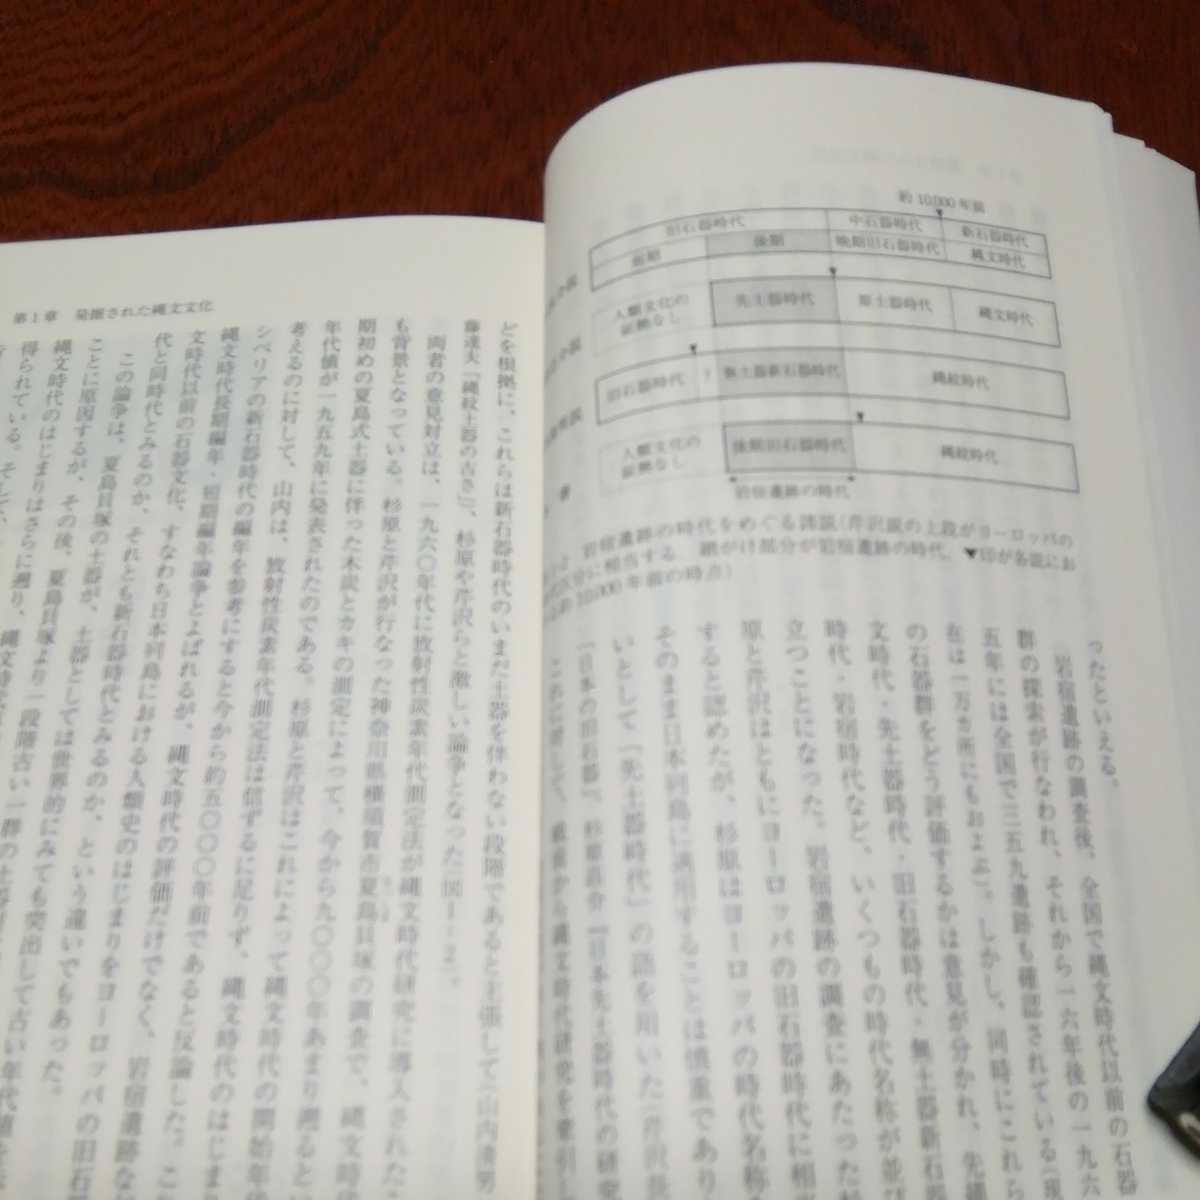 約10,000年前
旧石器時代
中石器時代
新石器時代
前期
後期
晩期旧石器時代
縄文時代
人類文化の
証拠なし
先土器時代
原土器時代
縄文時代
旧石器時代
?
無土器新石器時代
縄紋時代
人類文化の
証拠なし
後期旧石器時代
縄紋時代
岩宿遺跡の時代
岩宿遺跡の時代をめぐる諸説(芹沢説の上段がヨーロッパの
に相当する 網がけ部分が岩宿遺跡の時代、▼印が各説にお
10,000年前の時点)
ったといえる。
岩宿遺跡の調査後、全国で縄文時代以前の石器
群の探索が行なわれ、それから一六年後の一九六
五年には全国で三三五九遺跡も確認されている(現
在は一万カ所にもおよぶ)。しかし、同時にこれら
の石器群をどう評価するかは意見が分かれ、先縄
文時代・先土器時代・旧石器時代・無土器新石
時代・岩宿時代など、いくつもの時代名称が並び
立つことになった。岩宿遺跡の調査にあたった杉
原と芹沢はともにヨーロッパの旧石器時代に相
すると認めたが、杉原はヨーロッパの時代名称
そのまま日本列島に適用することは慎重であり
いとして「先土器時代」の語を用いた(芹沢長
『日本の旧石器』、杉原荘介『日本先土器時代の研究
これに対して、戦前から縄文時代研究を牽引し
第1章 発掘された縄文文化
どを根拠に、これらは新石器時代のいまだ土器を伴わない段階であると主張して(山内清男
藤達夫「縄紋土器の古さ」)、杉原や芹沢らと激しい論争となった(図1-2)。
両者の意見対立は、一九六〇年代に放射性炭素年代測定法が縄文時代研究に導入されたこ
も背景となっている。杉原と芹沢が行なった神奈川県横須賀市夏島貝塚の調査で、縄文時
期初めの夏島式土器に伴った木炭とカキの測定によって、今から九〇〇〇年あまり遡ると
年代値が一九五九年に発表されたのである。杉原と芹沢はこれによって縄文時代の開始年
考えるのに対して、山内は、放射性炭素年代測定法は信ずるに足りず、縄文時代のはじま
シベリアの新石器時代の編年を参考にすると今から約五〇〇〇年前であると反論した。こ
縄文時代長期編年・短期編年論争とよばれるが、縄文時代の評価だけでなく、岩宿遺跡な
文時代以前の石器文化、すなわち日本列島における人類史のはじまりをヨーロッパの旧石
代と同時代とみるのか、それとも新石器時代とみるのか、という違いでもあった。
この論争は、夏島貝塚の土器が、土器としては世界的にみても突出して古い年代値
ことに原因するが、その後、夏島貝塚より一段階古い一群の土器
縄文時代のはじまりはさらに遡り、
得られている。そして、